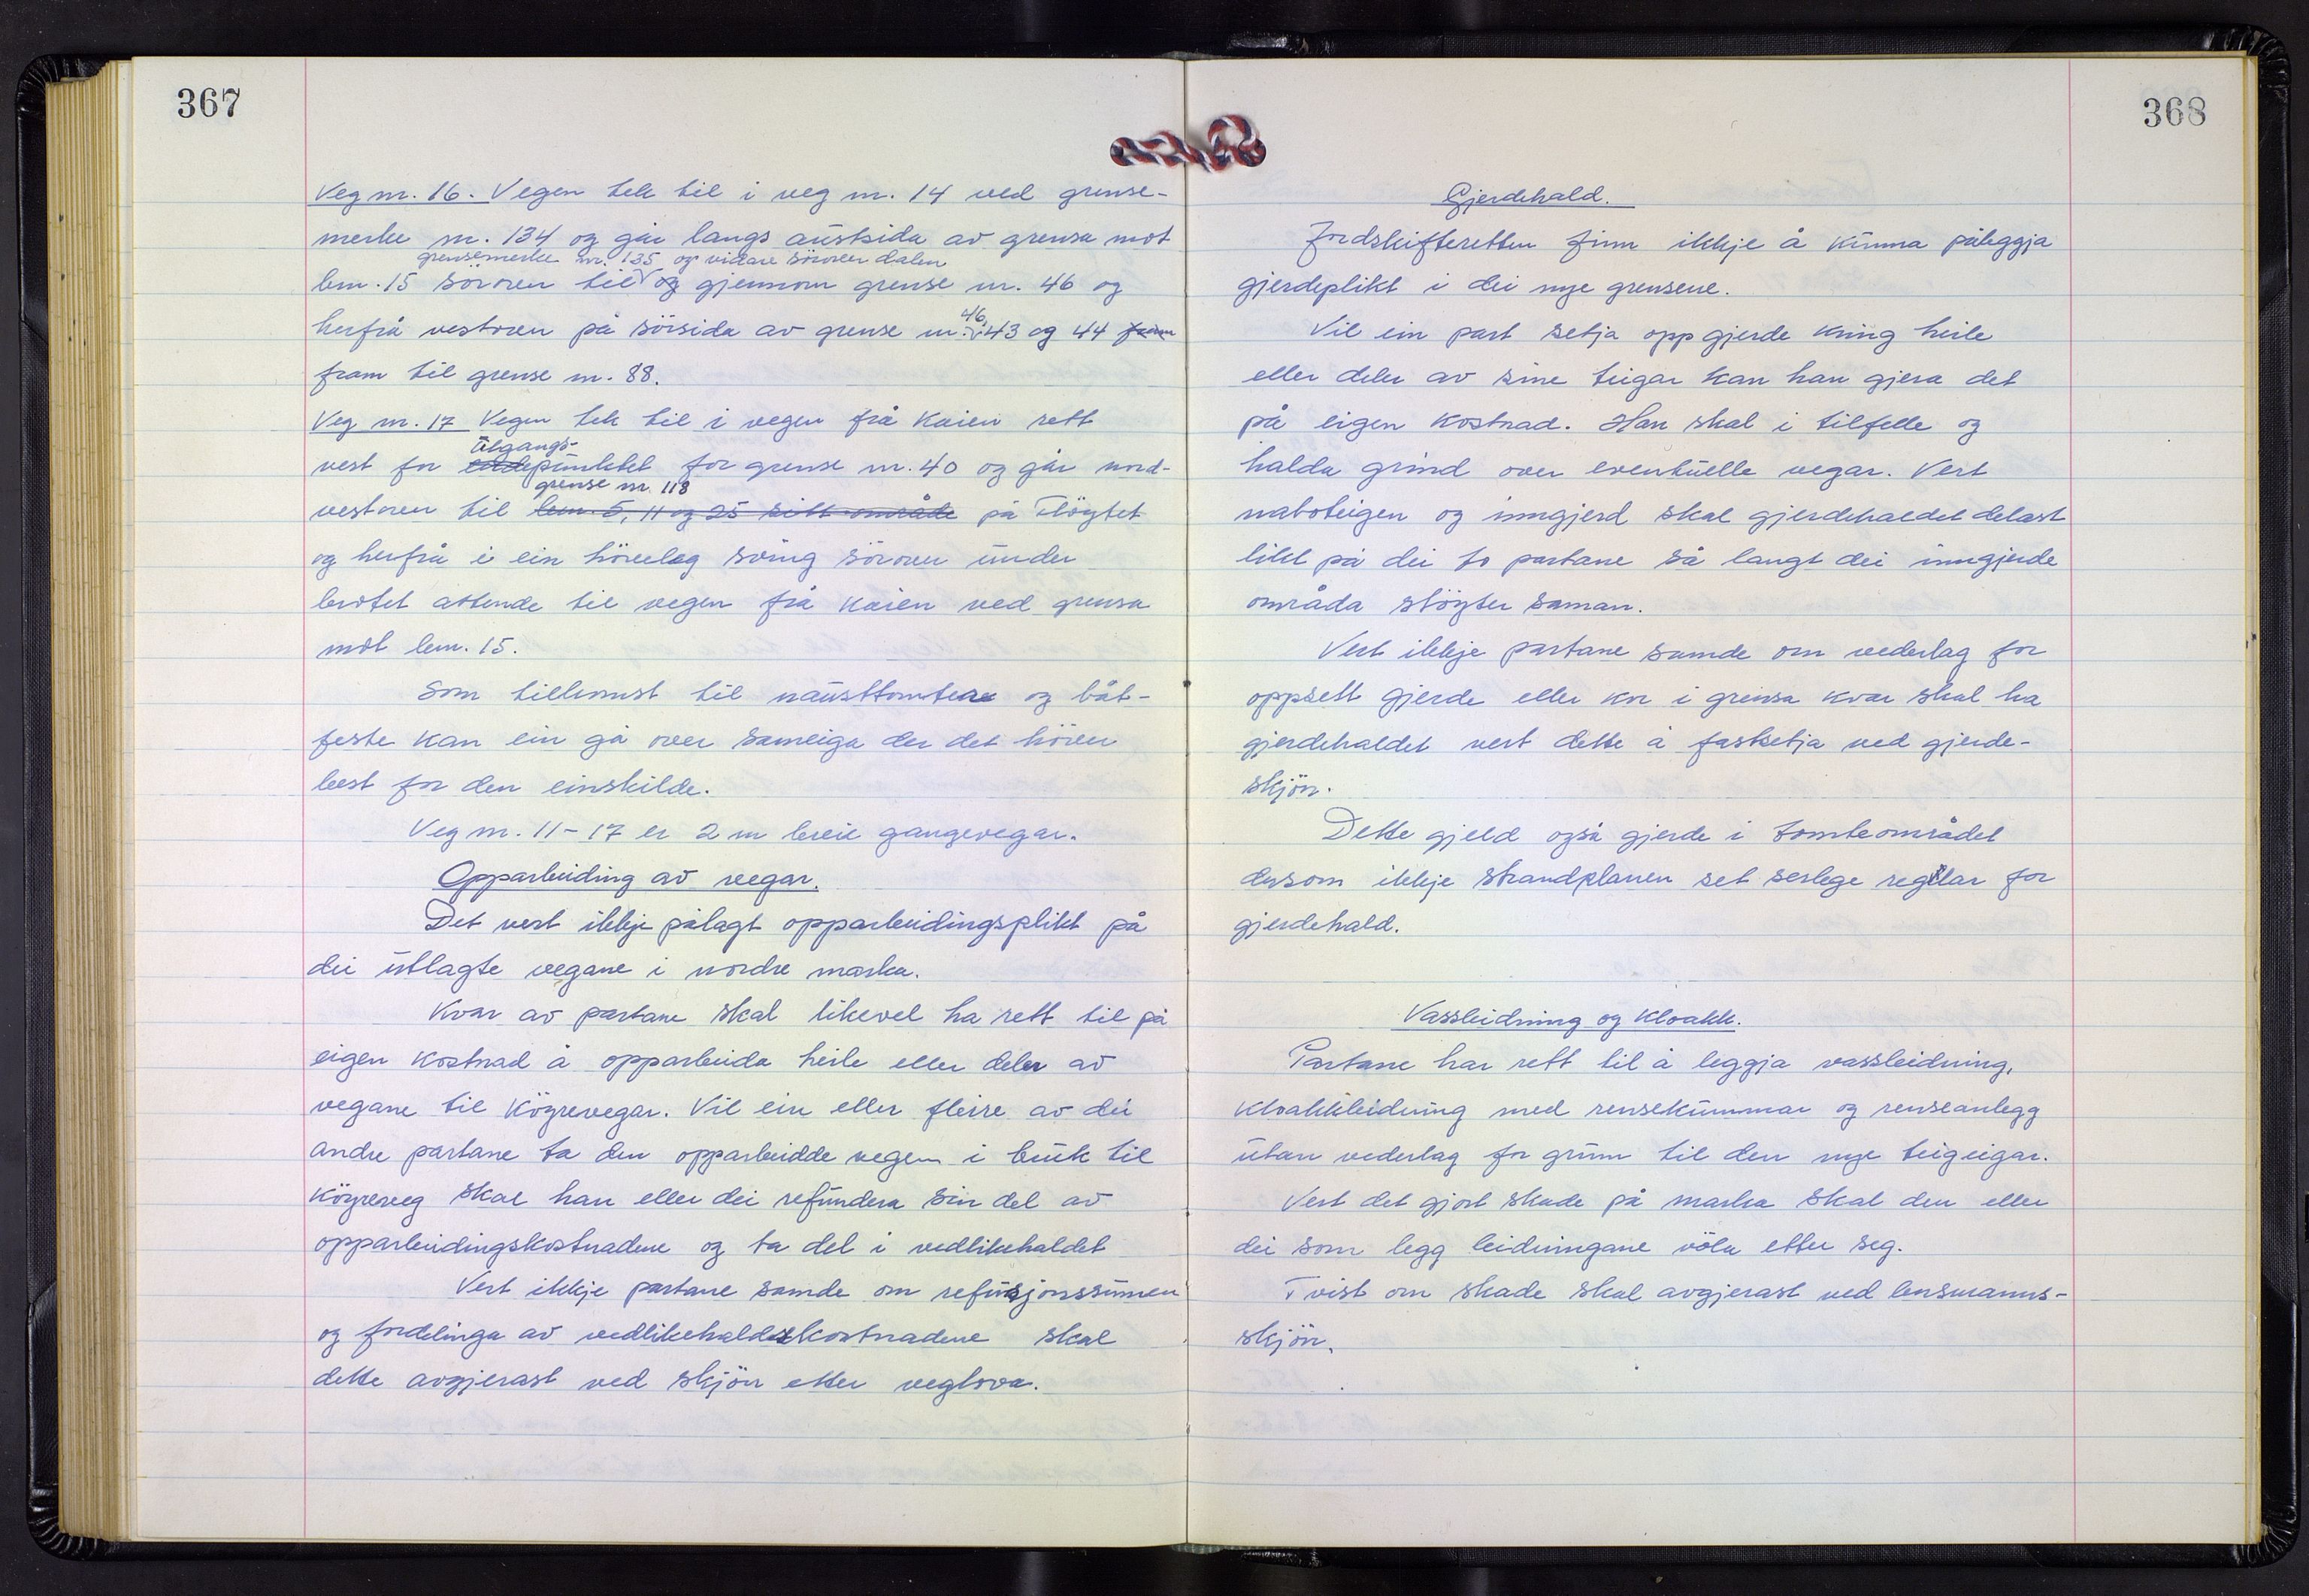 367
Veg nr. 16. Vegen tek til i veg nr. 14 ved grense-
merke nr. 134 og går langs austsida av grensa mot
grensemerke nr. 135 og vidare söroven dalen
lem. 15 söroven til og gjennom grense nr. 46 og
46,
herfrå vestoven på sörsida av grense nr. 43 og 44 fram
fram til grense nr. 88.
Veg nr. 17 Vegen tek til i vegen frå kaien rett
utgangs-
vest for endepunktet for grense nr. 40 og går nord-
grense nr. 118
vestoven til lem. 5, 11 og 25 sitt område på Flöytet
og herfrå i ein höveleg sving söroven under
brotet attende til vegen frå kaien ved grensa
mot lem. 15.
Som tilkomst til nausttomtene og båt-
feste kan ein gå over sameiga der det höver
best for den einskilde.
Veg nr. 11-17 er 2 m breie gangevegar.
Opparbeiding av vegar.
Det vert ikkje pålagt opparbeidingsplikt på
dei utlagte vegane i nordre marka.
Kvar av partane skal likevel ha rett til på
eigen kostnad å opparbeida heile eller deler av
vegane til köyrevegar. Vil ein eller fleire av dei
andre partane ta den opparbeidde vegen i bruk til
köyreveg skal han eller dei refundera sin del av
opparbeidingskostnadene og ta del i vedlikehaldet
Vert ikkje partane samde om refusjonssumen
og fordelinga av vedlikehaldskostnadene skal
dette avgjerast ved skjön etter veglova.
368
Gjerdehald.
Jordskifteretten finn ikkje å kunna påleggja
gjerdeplikt i dei nye grensene.
Vil ein part setja opp gjerde kring heile
eller deler av sine teigar kan han gjera det
på eigen kostnad. Han skal i tilfelle og
halda grind over eventuelle vegar. Vert
naboteigen og inngjerd skal gjerdehaldet delast
likt på dei to partane så langt dei inngjerde
områda stöyter saman.
Vert ikkje partane samde om vederlag for
oppsett gjerde eller kor i grensa kvar skal ha
gjerdehaldet vert dette å fastsetja ved gjerde-
skjön.
Dette gjeld også gjerde i tomteområdet
dersom ikkje strandplanen set serlege reglar for
gjerdehald.
Vassleidning og kloakk.
Partane har rett til å leggja vassleidning,
kloakkleidning med rensekummar og renseanlegg
utan vederlag for grunn til den nye teigeigar.
Vert det gjort skade på marka skal den eller
dei som legg leidningane völa etter seg.
Tvist om skade skal avgjerast ved lensmanns-
skjön.